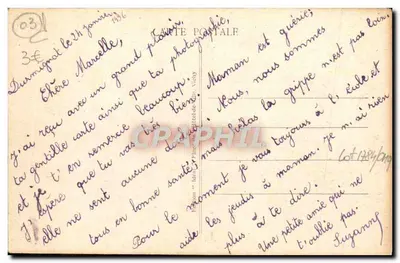 03
3€
CARTE POSTALE
Durmignat le 24 janvier
1936
Chère Marcelle,
J'ai reçu avec un grand plaisir
ta gentille carte ainsi que ta photographie,
et je t'en remercie beaucoup.
J'espère que tu vas très bien. Maman est guérie;
elle ne sent aucune
tous en bonne santé, mais hélas la grippe n'est pas loin.
Nous, nous sommes
Pour le moment je vais toujours à l'école et
aide les jeudis à maman. Je n'ai rien
plus à te dire.
Une petite amie qui ne
t'oublie pas.
Suzanne